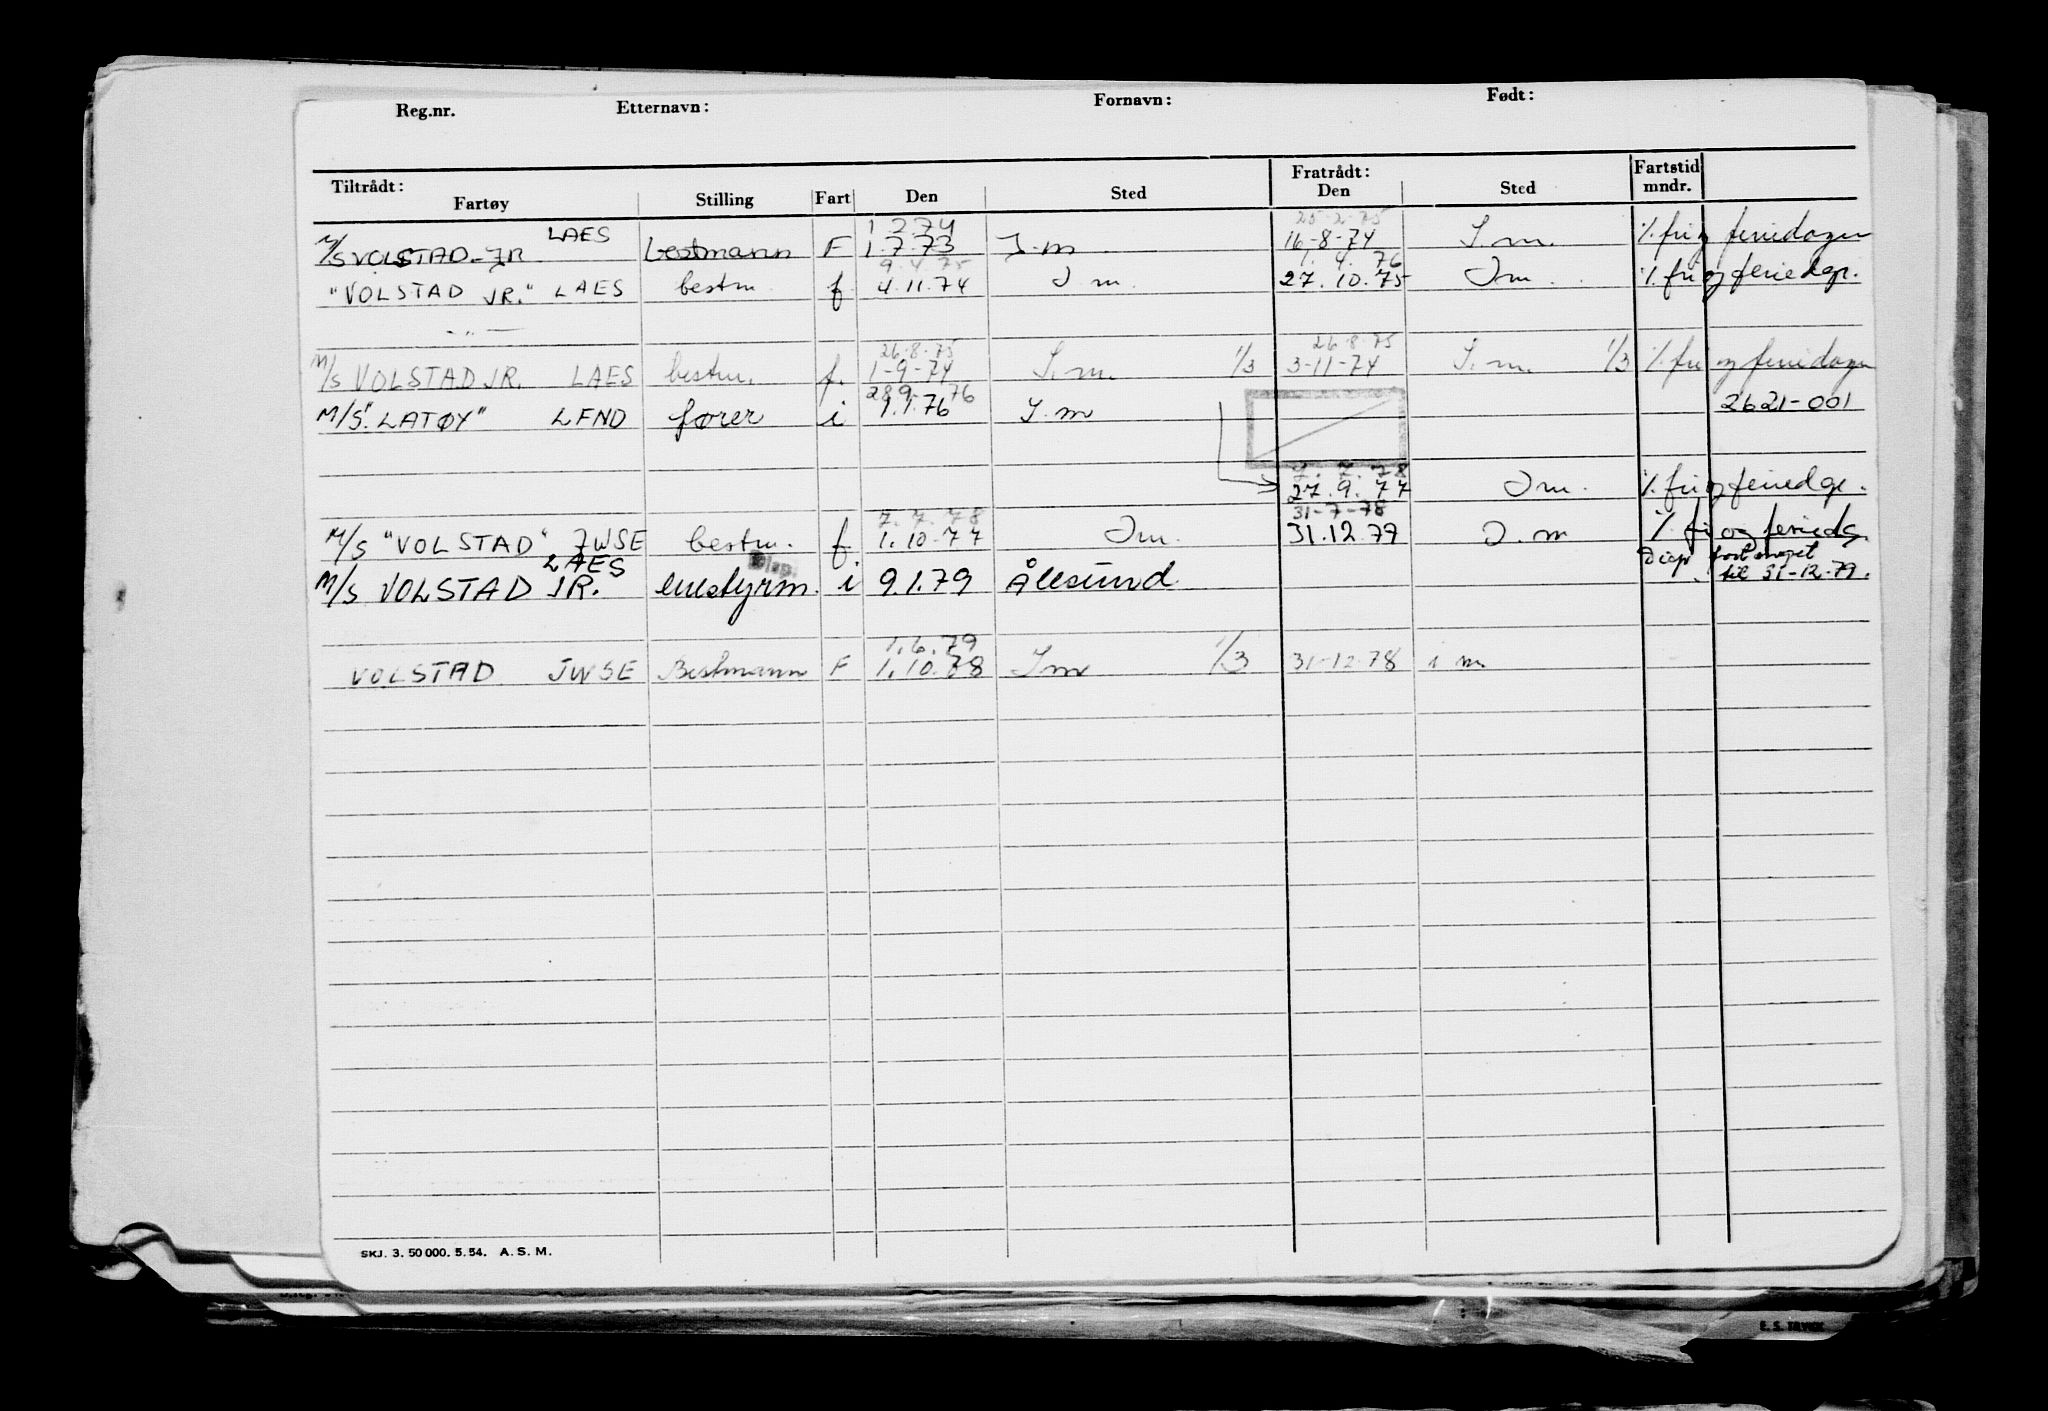 Reg.nr. Etternavn: Fornavn: Født:
Tiltrådt: Fratrådt: Fartstid
Fartøy Stilling Fart Den Sted Den Sted mndr.
1.2.74 25-2-75
M/S VOLSTAD-JR LAES bestmann F 1.7.73 I.m 16-8-74 I.m. ٪ fri og feriedager
9.4.75 1.4.76
"VOLSTAD JR." LAES bestm. f 4.11.74 I m. 27.10.75 Im. ٪ fri og feriedgr.
- " -
26.8.75 26.8.75
M/S VOLSTAD JR. LAES bestm. f. 1-9-74 I.m. 1/3 3-11-74 I.m. 1/3 ٪ fri og feriedager
289 76
M/S "LATØY" LFND fører i 1.1.76 I.m 2621-001
7.7.78
27.9.77 Im. ٪ fri og feriedgr.
7.7.78 31-7-78
M/S "VOLSTAD" JWSE bestm. f 1.10-77 Im. 31.12.77 I.m ٪ fri og feriedg.
LAES Disp fort. mønst
M/S VOLSTAD JR. enestyrm. i 9.1.79 Ålesund til 31-12-79.
1.6.79
VOLSTAD JWSE Bestmann F 1.10.78 Im 1/3 31-12.78 i m.
SKJ. 3. 50 000. 5. 54. A. S. M.
E. S. TRYKK